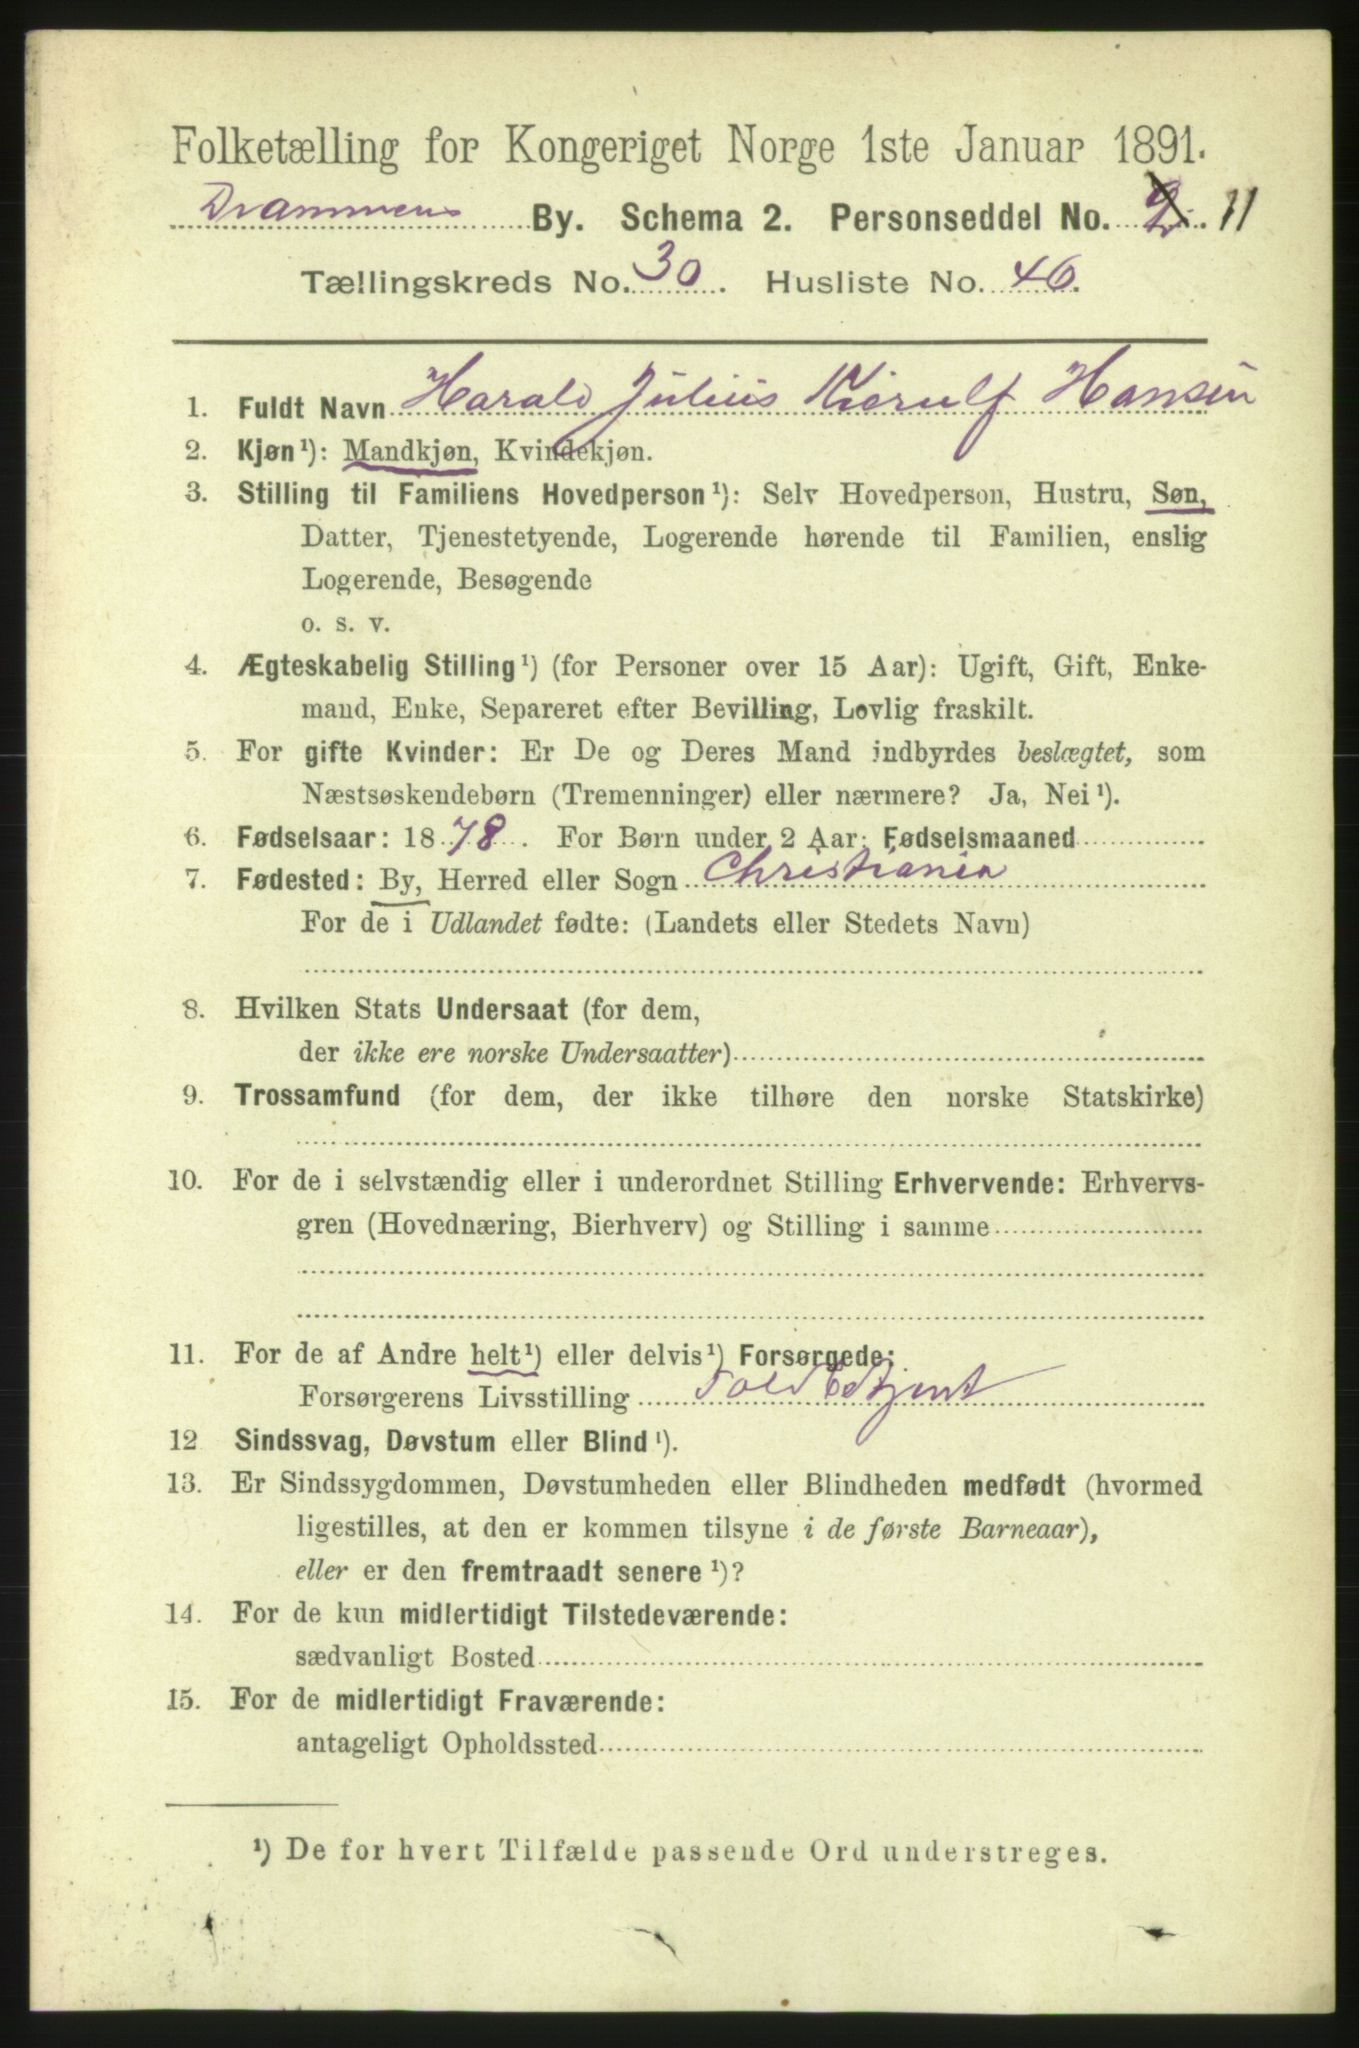 Folketælling for Kongeriget Norge 1ste Januar 1891.
Drammens By. Schema 2. Personseddel No. 2. 11
Tællingskreds No. 30. Husliste No. 46.
1. Fuldt Navn Harald Julius Kierulf Hansen
2. Kjøn¹): Mandkjøn, Kvindekjøn.
3. Stilling til Familiens Hovedperson¹): Selv Hovedperson, Hustru, Søn,
Datter, Tjenestetyende, Logerende hørende til Familien, enslig
Logerende, Besøgende
o. s. v.
4. Ægteskabelig Stilling¹) (for Personer over 15 Aar): Ugift, Gift, Enke-
mand, Enke, Separeret efter Bevilling, Lovlig fraskilt.
5. For gifte Kvinder: Er De og Deres Mand indbyrdes beslægtet, som
Næstsøskendebørn (Tremenninger) eller nærmere? Ja, Nei¹).
6. Fødselsaar: 1878. For Børn under 2 Aar: Fødselsmaaned
7. Fødested: By, Herred eller Sogn Christiania
For de i Udlandet fødte: (Landets eller Stedets Navn)
8. Hvilken Stats Undersaat (for dem,
der ikke ere norske Undersaatter)
9. Trossamfund (for dem, der ikke tilhøre den norske Statskirke)
10. For de i selvstændig eller i underordnet Stilling Erhvervende: Erhvervs-
gren (Hovednæring, Bierhverv) og Stilling i samme
11. For de af Andre helt¹) eller delvis¹) Forsørgede:
Forsørgerens Livsstilling
12 Sindssvag, Døvstum eller Blind¹).
13. Er Sindssygdommen, Døvstumheden eller Blindheden medfødt (hvormed
ligestilles, at den er kommen tilsyne i de første Barneaar),
eller er den fremtraadt senere¹)?
14. For de kun midlertidigt Tilstedeværende:
sædvanligt Bosted
15. For de midlertidigt Fraværende:
antageligt Opholdssted
¹) De for hvert Tilfælde passende Ord understreges.